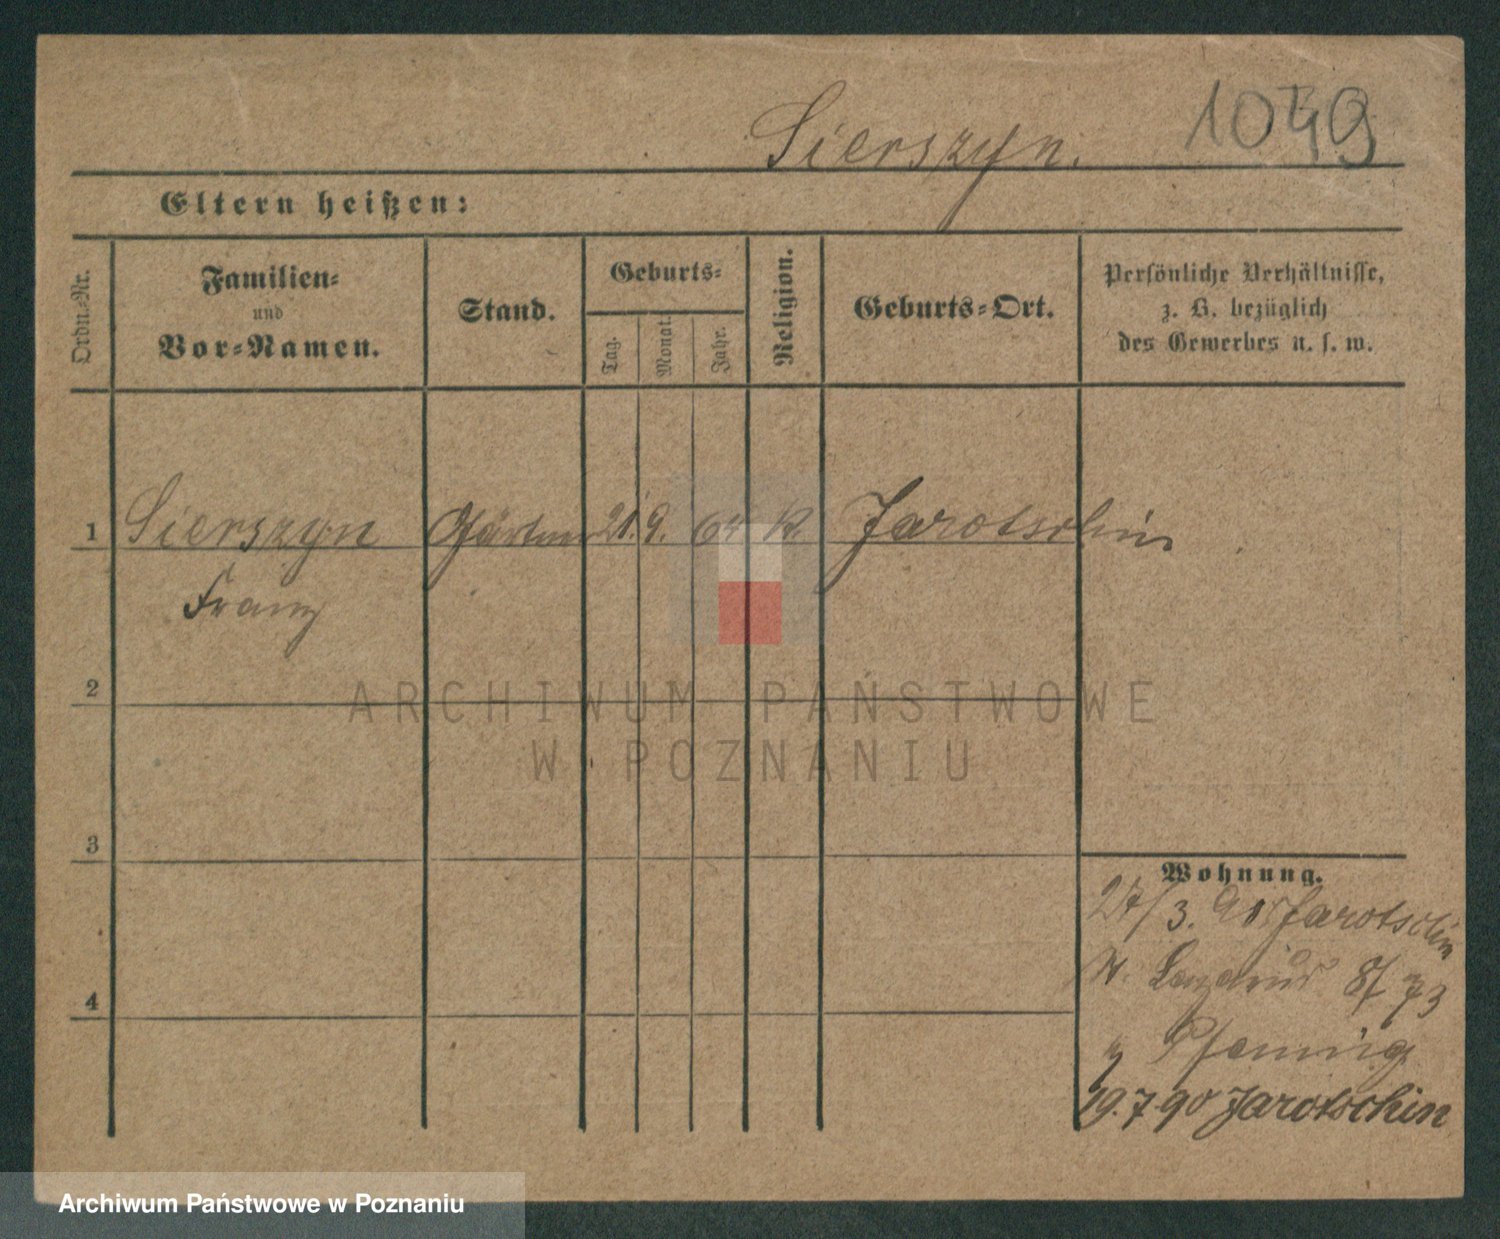 Sierszyn. 1049
Eltern heißen:
Ordn.-Nr.
Familien-
und
Vor-Namen.
Stand.
Geburts-
Tag.
Monat.
Jahr.
Religion.
Geburts-Ort.
Persönliche Verhältnisse,
z. B. bezüglich
des Gewerbes u. s. w.
1 Sierszyn Gärtner 21. 9. 64 K. Jarotschin
Franz
2
3
4
Wohnung.
27/3. 90 Jarotschin
St. Lazarus 73
Pfennig
19.7.90 Jarotschin
ARCHIWUM PAŃSTWOWE
W POZNANIU
Archiwum Państwowe w Poznaniu